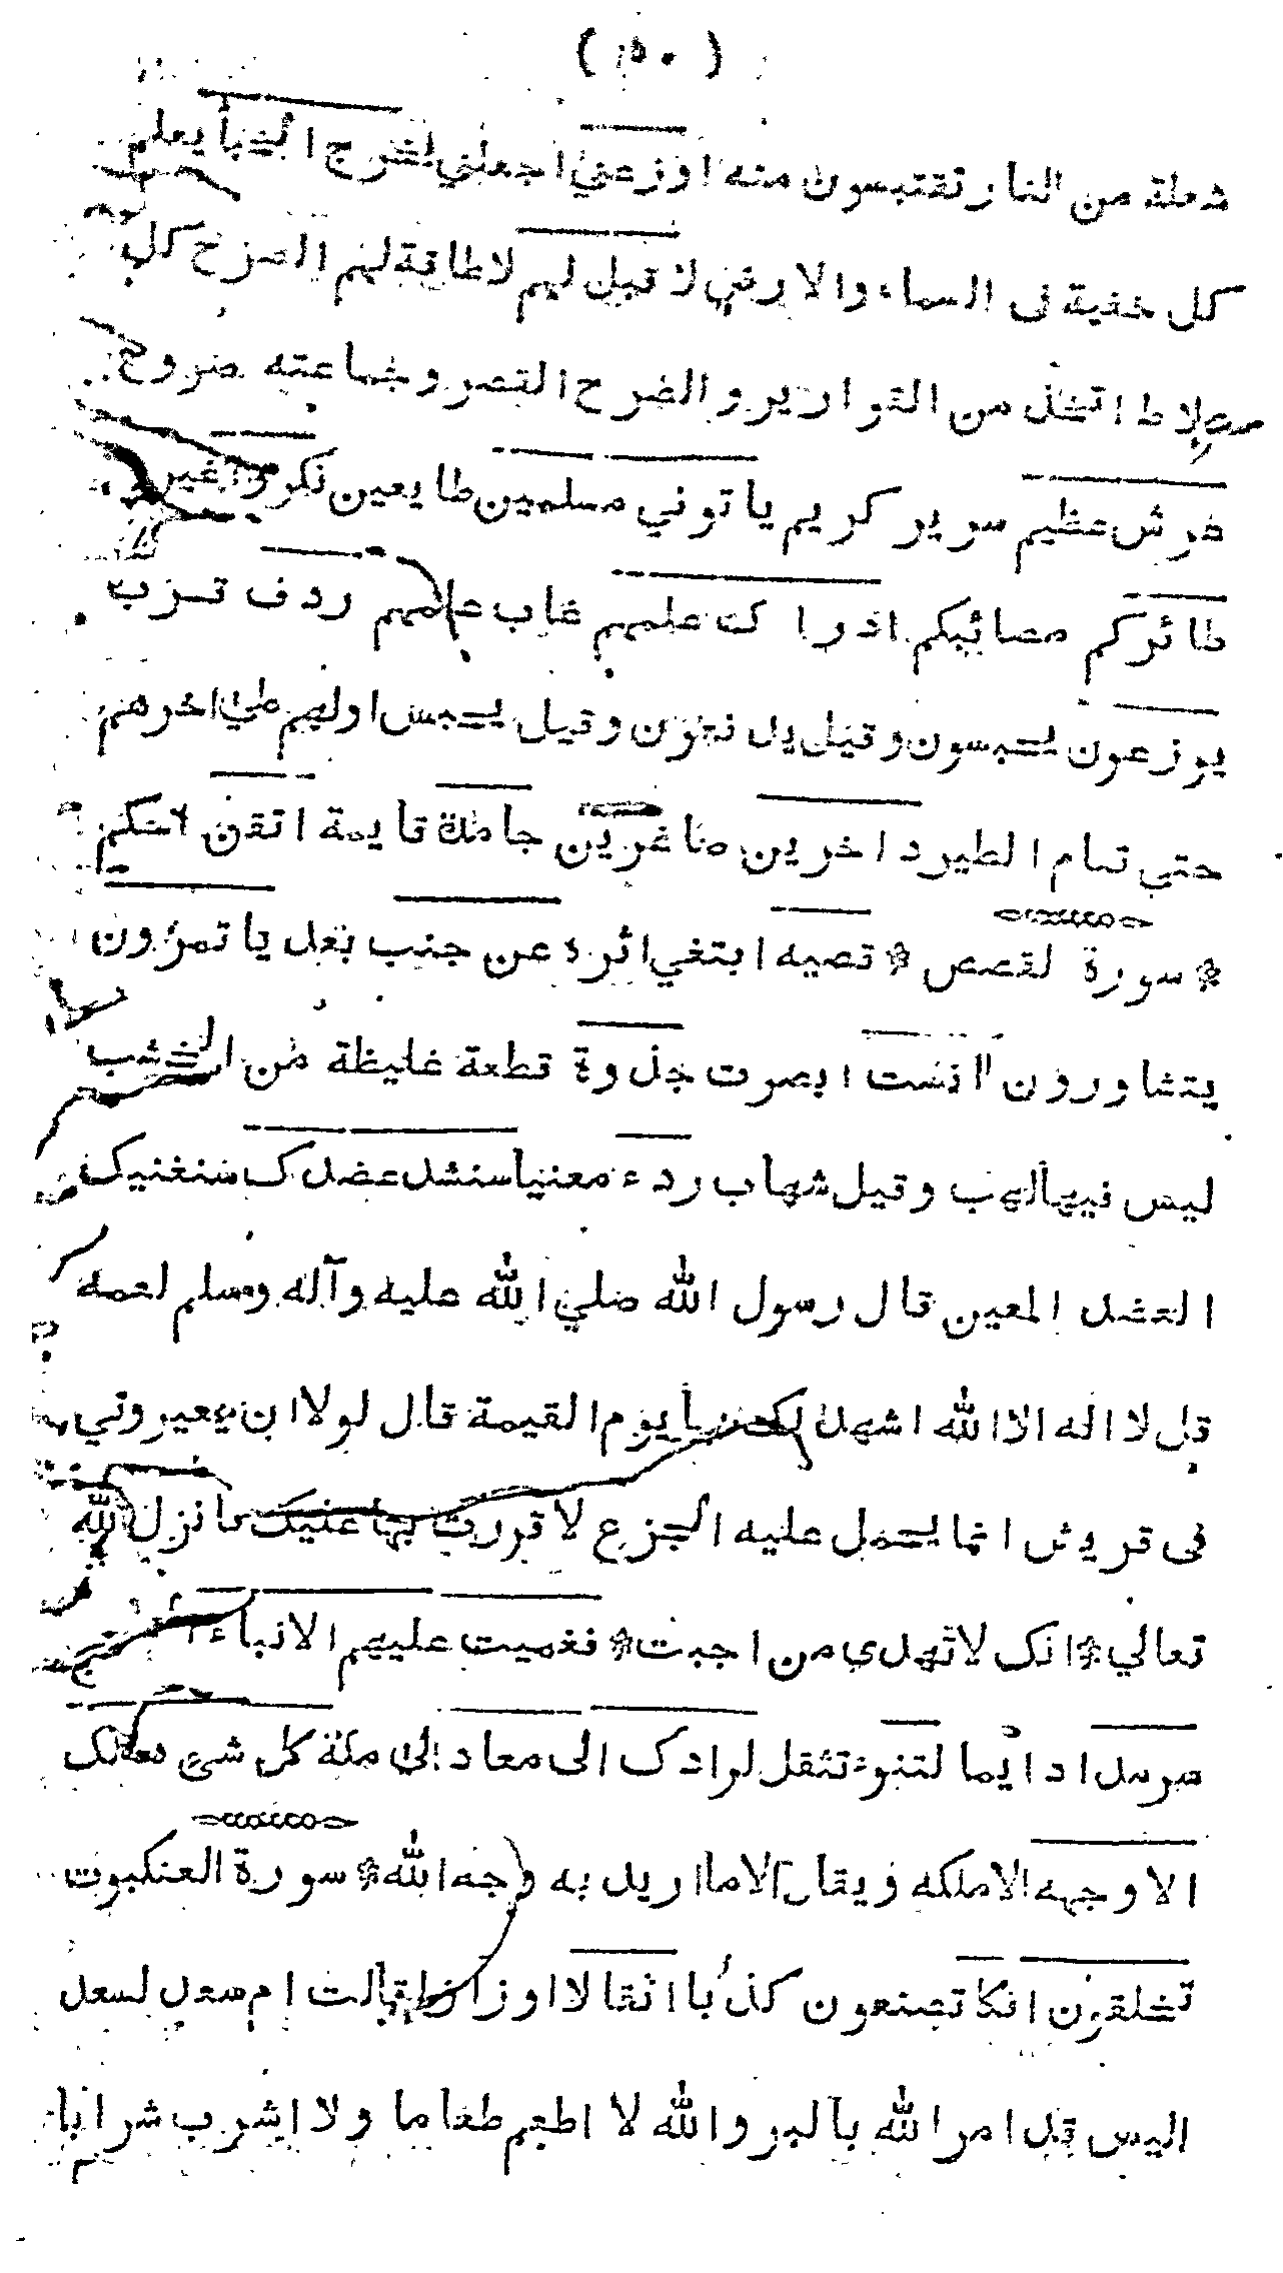 ( ١٥٠ )
شعلة من النار تقتبسون منه اوزعني اجعلني يخرج الخبأ يعلم
كل خفية فى السماء والارض لا قبل لهم لاطاقة لهم الصرح كل
ملاط اتخذ من القوارير والصرح القصر وجماعته صروح
عرش عظيم سرير كريم ياتوني مسلمين طايعين نكروا غيروا
طائركم مصائبكم ادرا ك علمهم غاب علمهم ردف قرب
يوزعون يحبسون وقيل يدفعون وقيل يحبس اولهم علي اخرهم
حتي تنام الطير داخرين صاغرين جامدة قايمة اتقن احكم
* سورة لقصص * قصيه ابتغي اثره عن جنب بعد ياتمرون
يتشاورون آنست ابصرت جذوة قطعة غليظة من الخشب
ليس فيها لهب وقيل شهاب ردء معنيا سنشد عضدك سنغنيك
العضد المعين قال رسول الله صلي الله عليه وآله وسلم لعمه
قل لا اله الا الله اشهد لك بها يوم القيمة قال لولا ان يعيروني
فى قريش انما يحمل عليه الجزع لا قررت بها عنيك فانزل الله
تعالي * انك لا تهدي من اجبت * فعميت عليهم الانباء
سرمدا دايما لتنوء تثقل لرادك الى معاد الى مكة كل شئ هالك
الا وجهه الاملكه ويقال الا ما اريد به وجه الله * سورة العنكبوت
تخلقون افكا تصنعون كذبا اثقالا اوزارا قالت ام سعد لسعد
اليس قد امر الله بالبر والله لا اطعم طعاما ولا اشرب شرابا